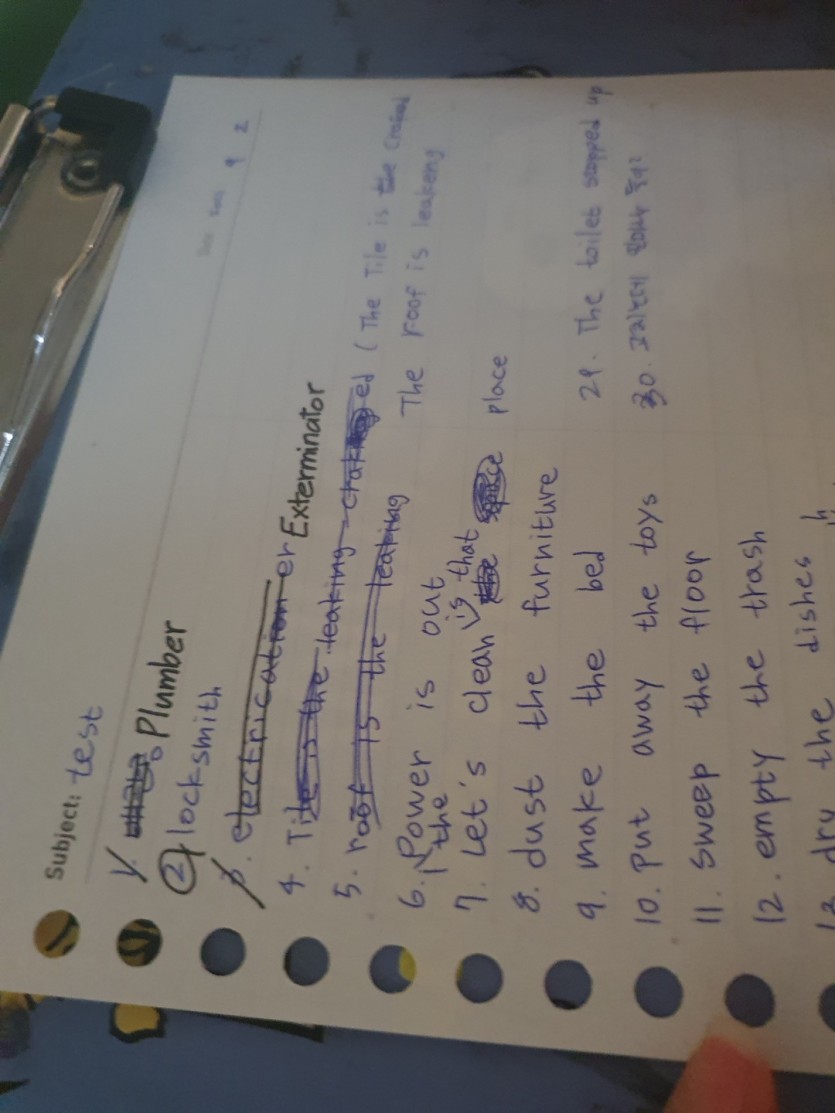 Subject: test
1. Plumber
2. locksmith
3. electrication er Exterminator
4. Tile is the leaking craked (The Tile is the
5. roof is the leaking The roof is leakeng
6. Power is out
the is that
7. Let's clean the space place
8. dust the furniture
9. make the bed 29. The toilet stopped up
10. Put away the toys 30.
11. sweep the floor
12. empty the trash
13. dry the dishes